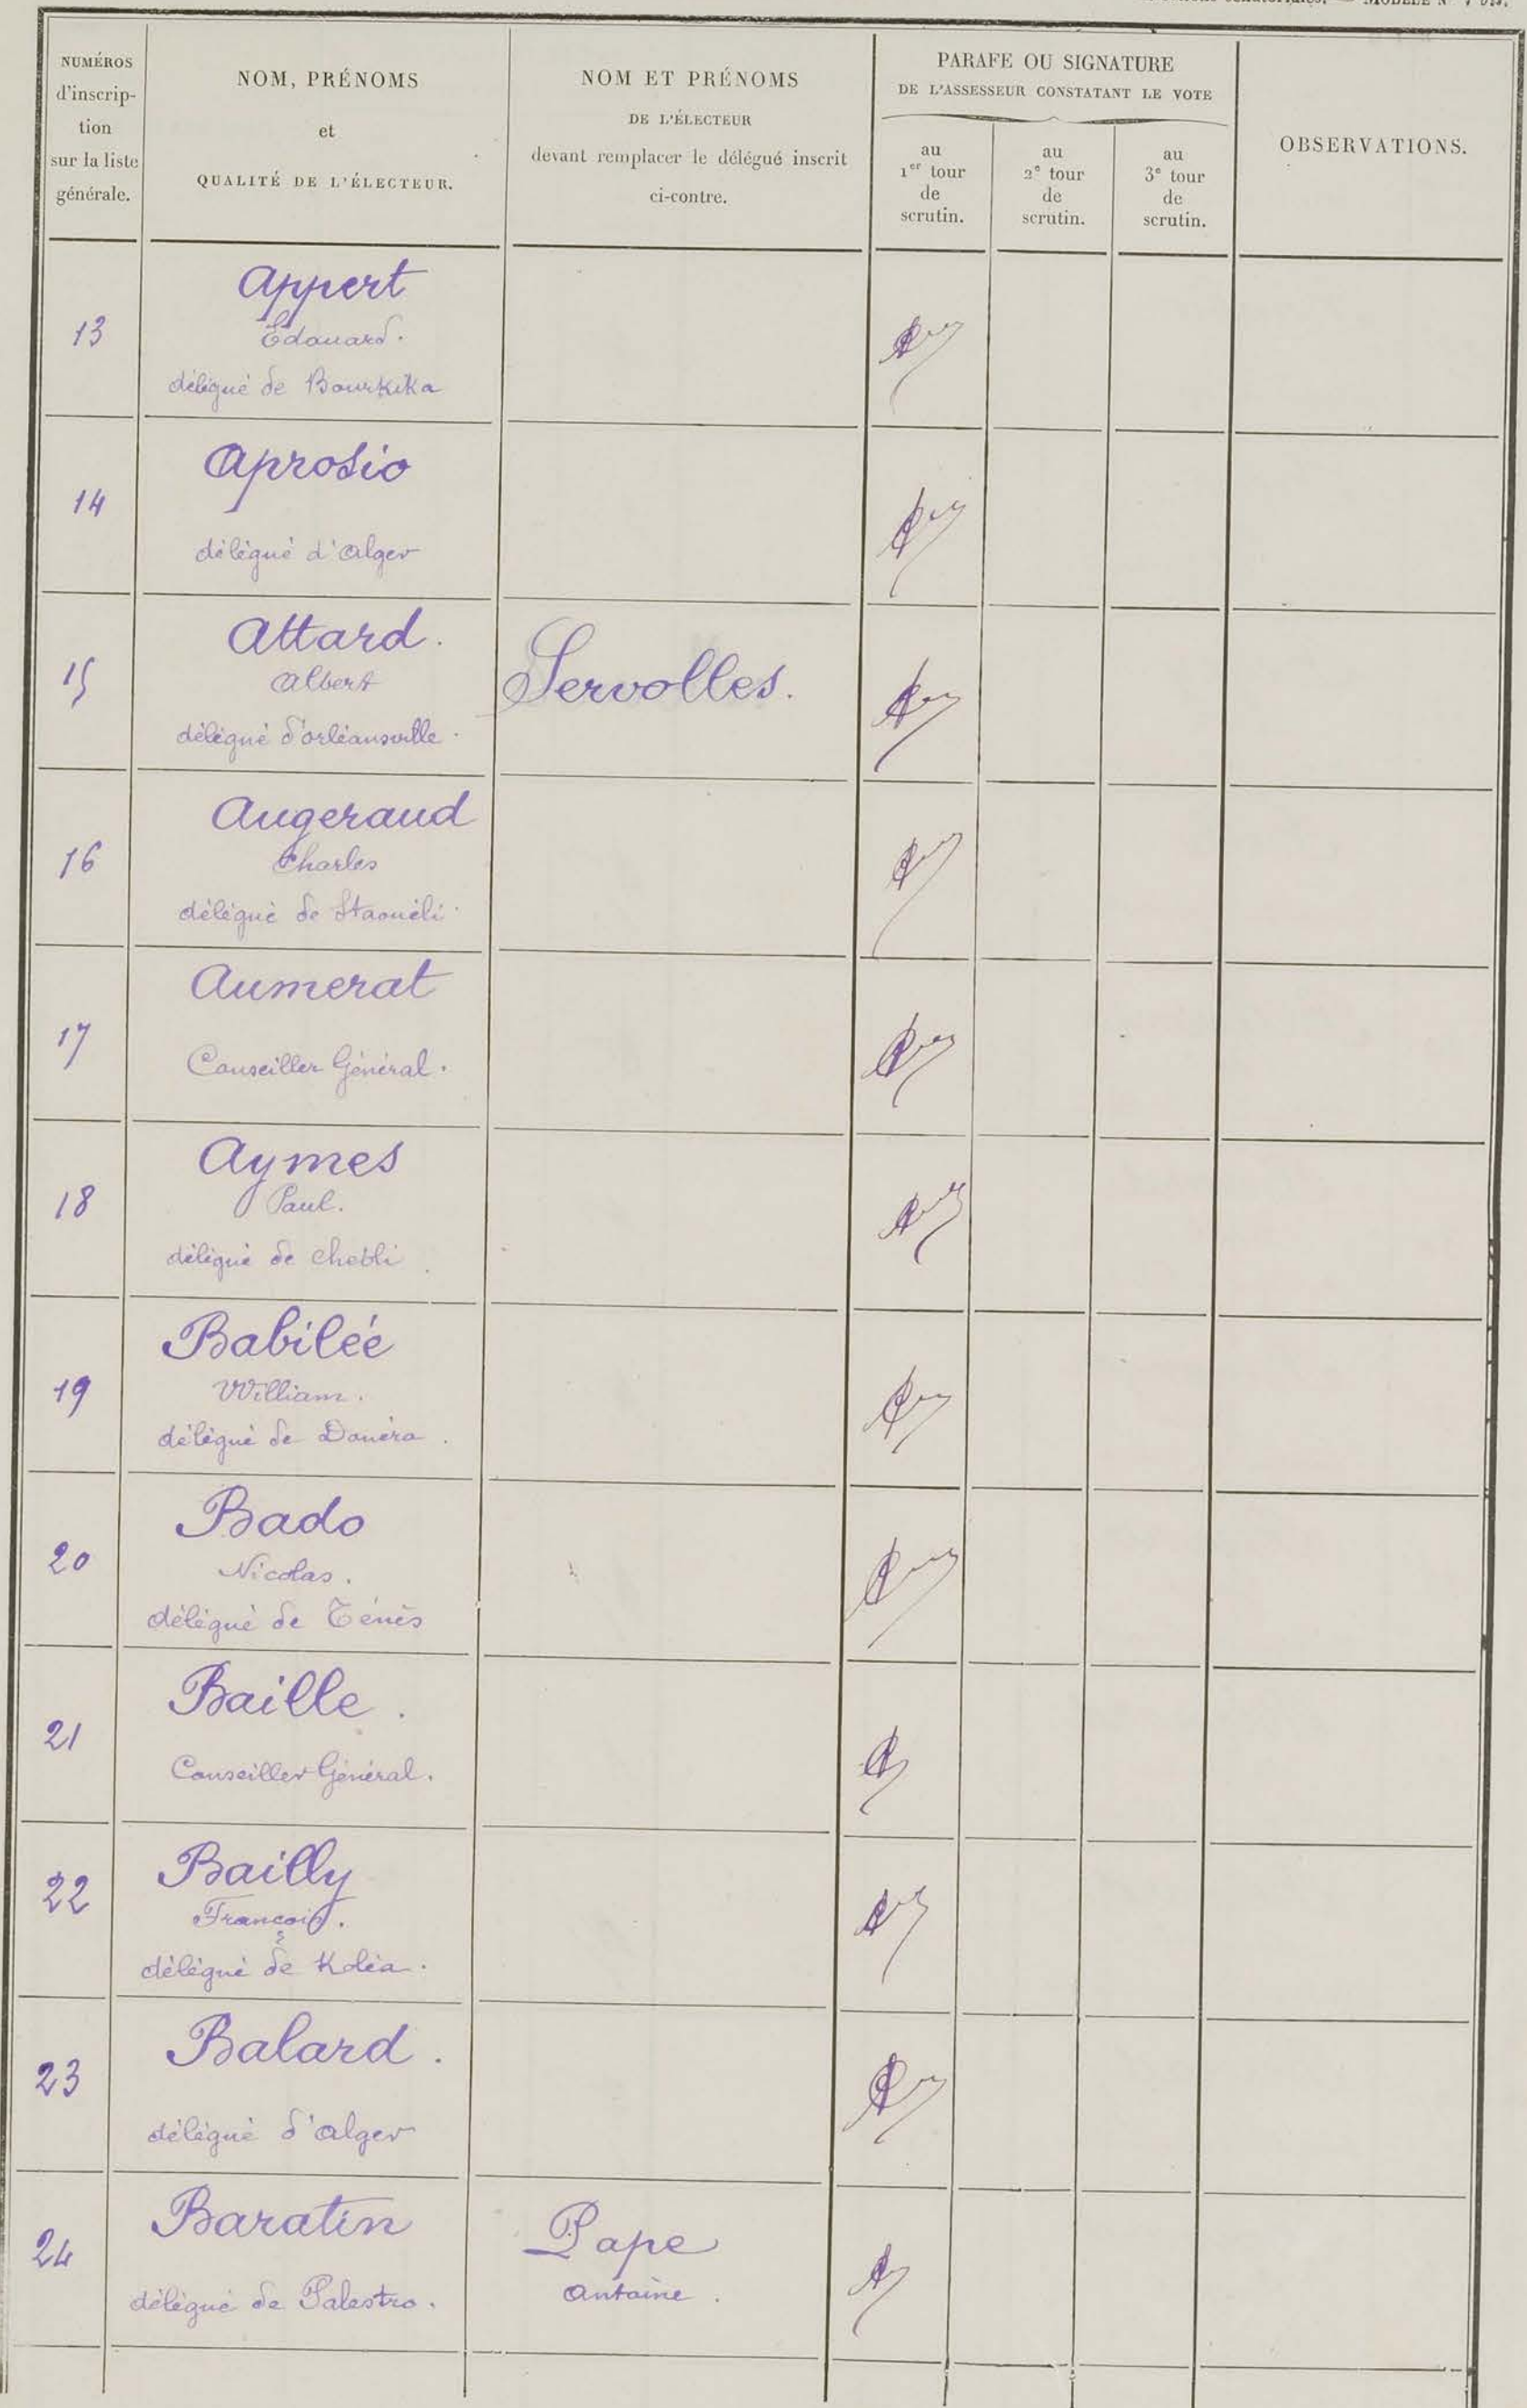 MODÈLE N° 7 bis.
NUMÉROS
d'inscrip-
tion
sur la liste
générale.
NOM, PRÉNOMS
et
QUALITÉ DE L'ÉLECTEUR.
NOM ET PRÉNOMS
DE L'ÉLECTEUR
devant remplacer le délégué inscrit
ci-contre.
PARAFE OU SIGNATURE
DE L'ASSESSEUR CONSTATANT LE VOTE
au
1er tour
de
scrutin.
au
2e tour
de
scrutin.
au
3e tour
de
scrutin.
OBSERVATIONS.
13
Appert
Edouard.
délégué de Bourkika
14
Aprosio
délégué d'Alger
15
Attard.
Albert
délégué d'orléansville.
Servolles.
16
Augeraud
Charles
délégué de Staouéli.
17
Aumerat
Conseiller Général.
18
Aymes
Paul.
délégué de chebli.
19
Babilée
William.
délégué de Douéra.
20
Bado
Nicolas.
délégué de Ténès
21
Baille.
Conseiller Général.
22
Bailly
François.
délégué de Koléa.
23
Balard.
délégué d'alger
24
Baratin
délégué de Palestro.
Pape
Antoine.